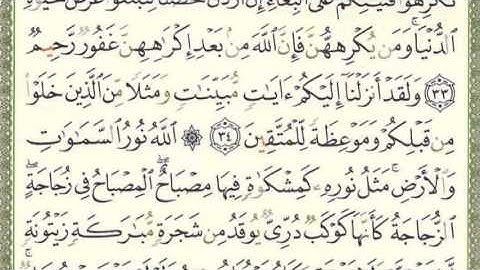 تُكْرِهُوا۟ فَتَيَٰتِكُمْ عَلَى ٱلْبِغَآءِ إِنْ أَرَدْنَ تَحَصُّنًا لِّتَبْتَغُوا۟ عَرَضَ ٱلْحَيَوٰةِ
ٱلدُّنْيَا ۚ وَمَن يُكْرِههُّنَّ فَإِنَّ ٱللَّهَ مِنۢ بَعْدِ إِكْرَٰهِهِنَّ غَفُورٌ رَّحِيمٌ
﴿٣٣﴾ وَلَقَدْ أَنزَلْنَآ إِلَيْكُمْ ءَايَٰتٍ مُّبَيِّنَٰتٍ وَمَثَلًا مِّنَ ٱلَّذِينَ خَلَوْا۟
مِن قَبْلِكُمْ وَمَوْعِظَةً لِّلْمُتَّقِينَ ﴿٣٤﴾ ۞ ٱللَّهُ نُورُ ٱلسَّمَٰوَٰتِ
وَٱلْأَرْضِ ۚ مَثَلُ نُورِهِۦ كَمِشْكَوٰةٍ فِيهَا مِصْبَاحٌ ۖ ٱلْمِصْبَاحُ فِى زُجَاجَةٍ ۖ
ٱلزُّجَاجَةُ كَأَنَّهَا كَوْكَبٌ دُرِّىٌّ يُوقَدُ مِن شَجَرَةٍ مُّبَٰرَكَةٍ زَيْتُونَةٍ